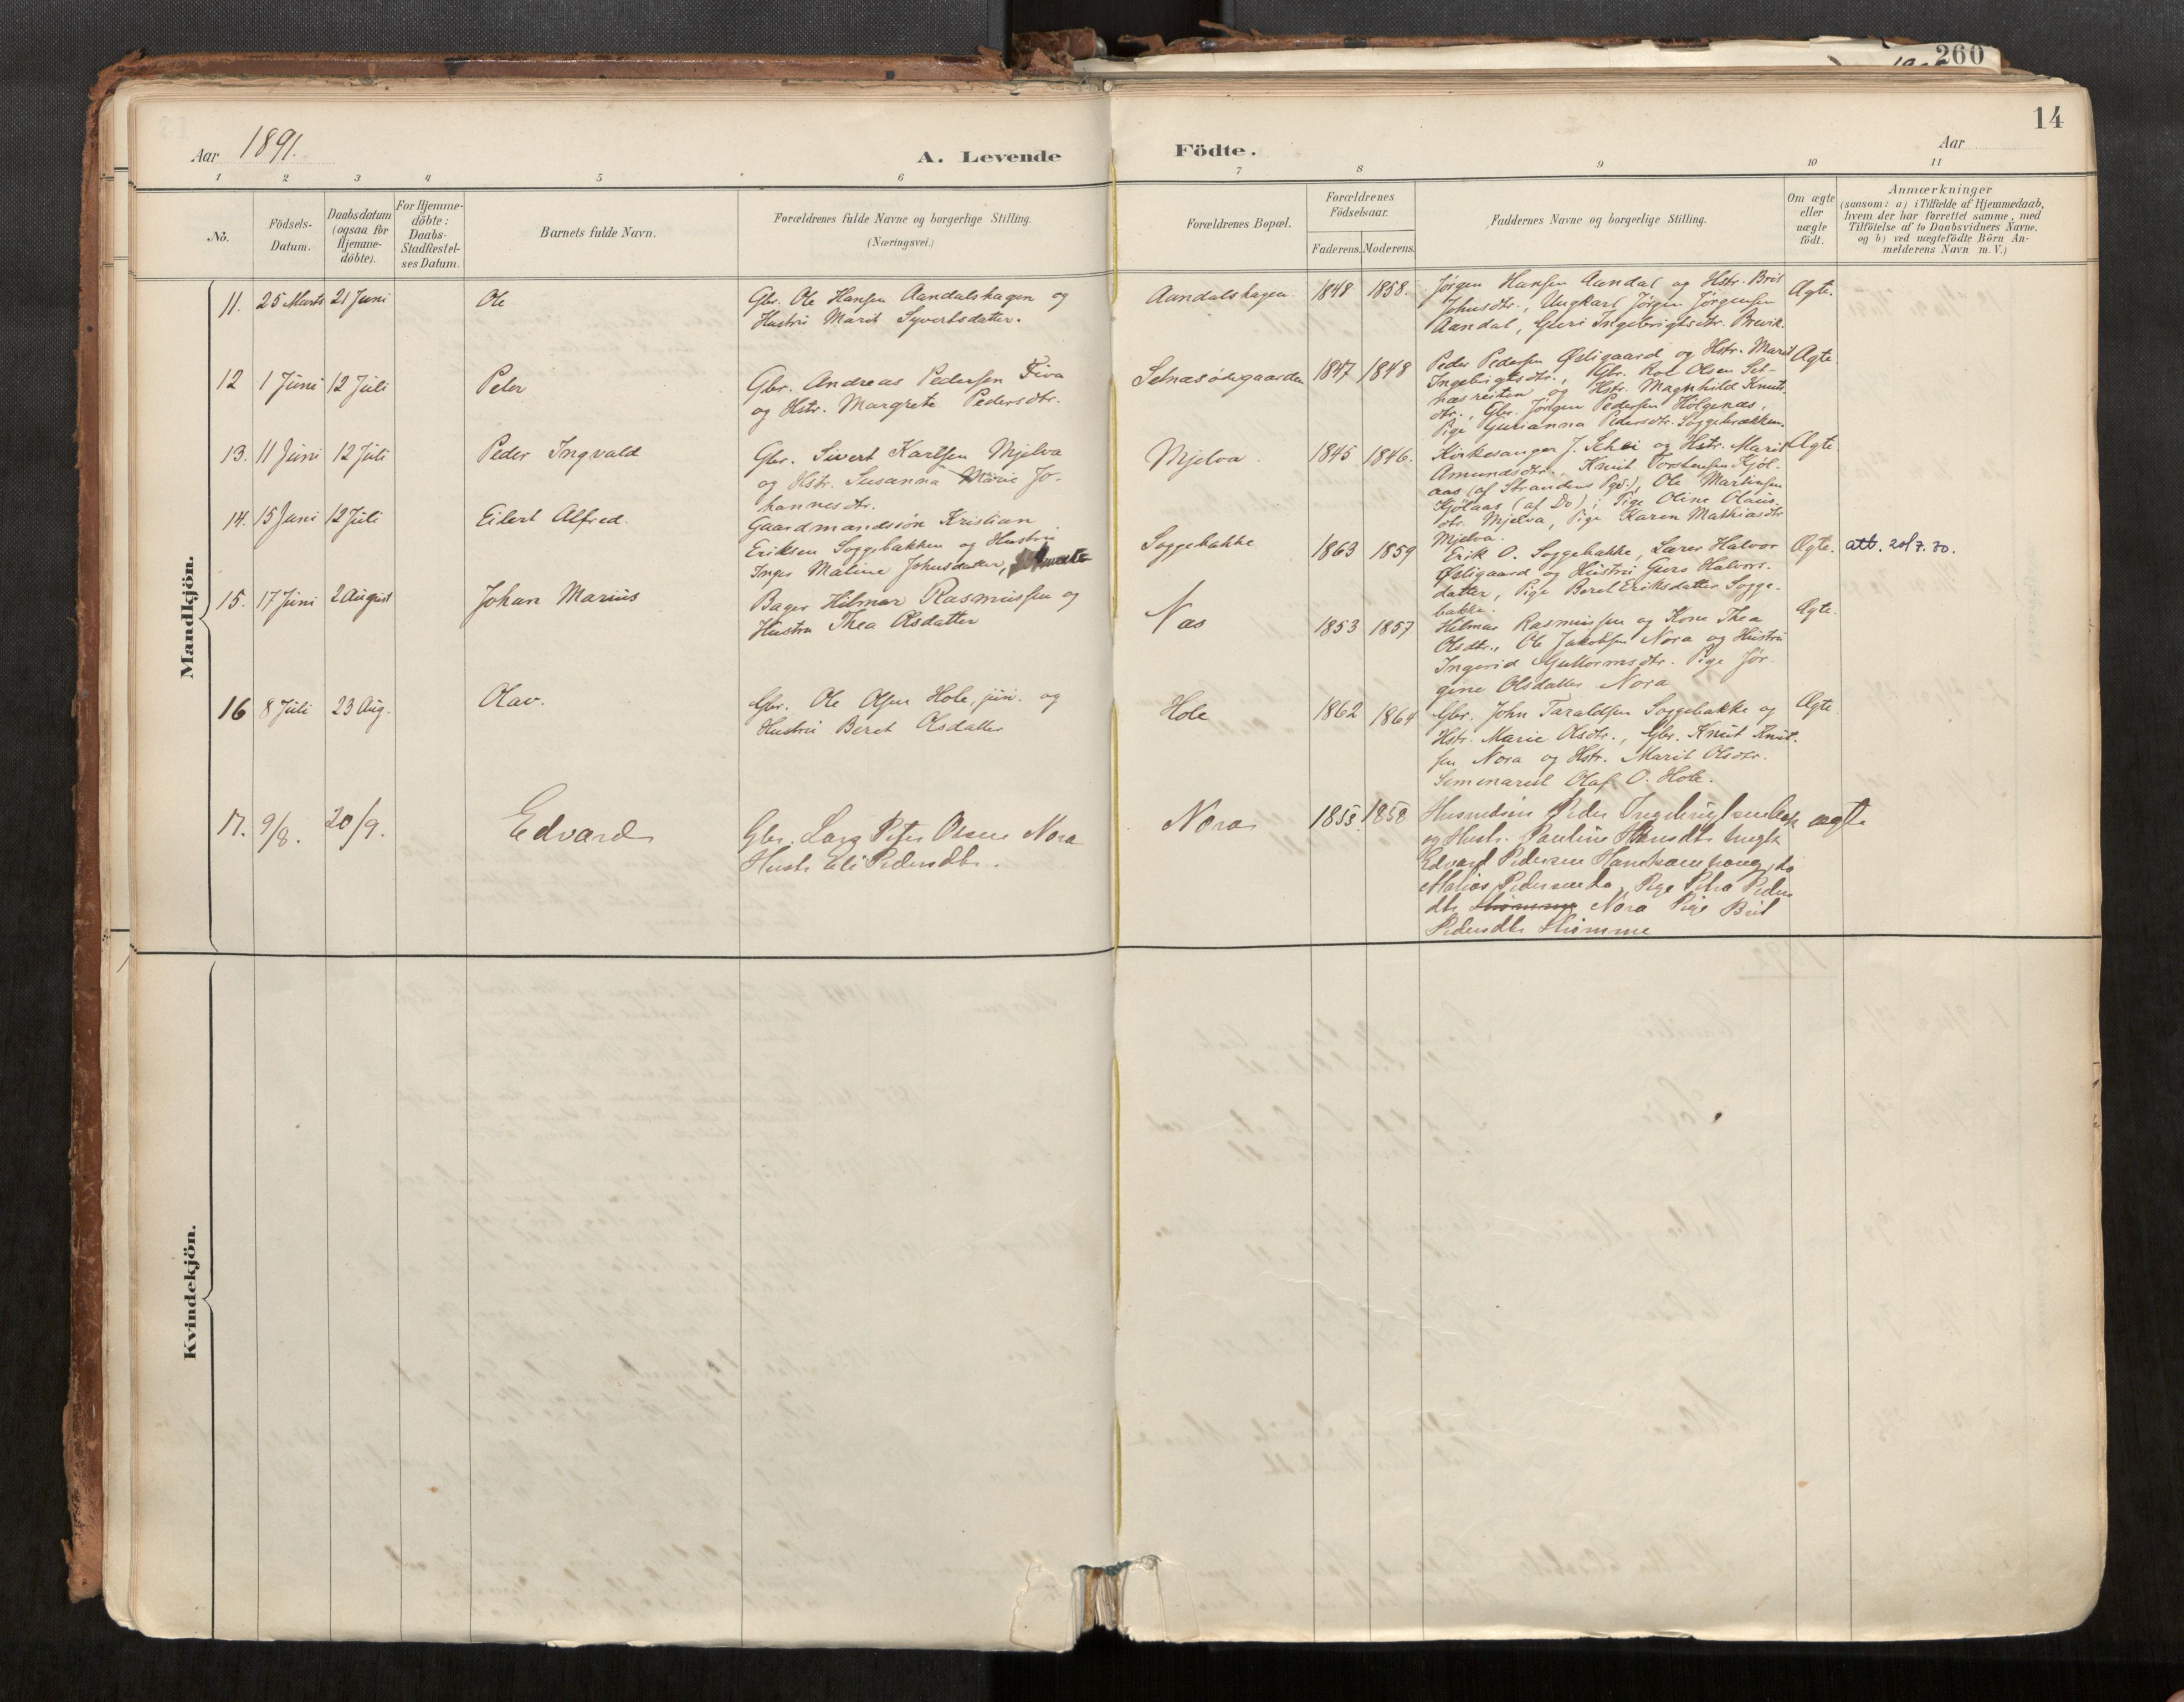 260
14
Aar 1891.
A. Levende
Födte.
Aar
1 2 3 4 5 6 7 8 9 10 11
No.
Födsels-
Datum.
Daabsdatum
(ogsaa for
Hjemme-
döbte).
For Hjemme-
döbte:
Daabs-
Stadfæstel-
ses Datum.
Barnets fulde Navn.
Forældrenes fulde Navne og borgerlige Stilling.
(Næringsvei.)
Forældrenes Bopæl.
Forældrenes
Födselsaar.
Faderens. Moderens.
Faddernes Navne og borgerlige Stilling.
Om ægte
eller
uægte
födt.
Anmærkninger
(saasom: a) i Tilfælde af Hjemmedaab,
hvem der har forrettet samme, med
Tilföielse af to Daabsvidners Navne,
og b) ved uægtefödte Börn An-
melderens Navn m. V.)
Mandkjön.
11. 25 Marts 21 Juni Ole
Gbr. Ole Hansen Aandalshagen og
Hustru Marit Syvertsdatter.
Aandalshagen. 1848 1858.
Jørgen Hansen Aandal og Hstr. Brit
Johnsdtr., Ungkarl Jørgen Jørgensen
Aandal, Guri Ingebrigtsdtr. Brevik.
Ægte.
12 1 Juni 12 Juli Peter
Gbr. Andreas Pedersen Fiva
og Hstr. Margrete Pedersdtr.
Setnæsødegaarden 1847 1848
Peder Pedersen Østigaard og Hstr. Marit
Ingebrigtsdtr., Gbr. Roe Olsen Set-
næsreiten og Hstr. Magnhild Knuts-
dtr., Gbr. Jørgen Pedersen Holgenæs,
Pige Gurianna Pedersdtr. Soggebrækken.
Ægte.
13. 11 Juni 12 Juli Peder Ingvald
Gbr. Sivert Karlsen Mjelva
og Hstr. Susanna Marie Jo-
hannesdtr.
Mjelva 1845 1846.
Kirkesanger J. Schei og Hstr. Marit
Amundsdtr., Knut Torstensen Kjøl-
aas (af Strandens Pgd.), Ole Martinsen
Kjølaas (af Do), Pige Oline Olaus-
dtr. Mjelva, Pige Karen Mathiasdtr
Mjelva.
Ægte.
14. 15 Juni 12 Juli Eilert Alfred.
Gaardmandssøn Kristian
Eriksen Soggebakken og Hustru
Inger Maline Johnsdatter,
Soggebakke 1863 1859
Erik O. Soggebakke, Lærer Halvor
Østigaard og Hustru Guro Halvors-
datter, Pige Beret Eriksdatter Sogge-
bakke.
Ægte. att. 20/7. 30.
15. 17 Juni 2 August Johan Marius
Bager Hilmar Rasmussen og
Hustru Thea Olsdatter
Næs 1853 1857
Hilmar Rasmussen og Kone Thea
Olsdtr., Ole Jakobsen Nora og Hustru
Ingerid Guttormsdtr. Pige Jør-
gine Olsdatter Nora
Ægte.
16 8 Juli 23 Aug. Olav.
Gbr. Ole Olsen Hole, jun. og
Hustru Beret Olsdatter
Hole 1862 1864
Gbr. John Taraldsen Soggebakke og
Hstr. Marie Olsdtr., Gbr. Knut Knut-
sen Nora og Hstr. Marit Olsdtr.
Semenarist Olaf O. Hole.
Ægte
17. 9/8. 20/9. Edvard
Gbr. Lars Peter Olsen Nora
Hustr. Eli Pedersdtr.
Nora 1853. 1858
Husmdsøn Peder Ingebrigtsen
og Hustr. Pauline Hansdtr Ungk
Edvard Pedersen do
Matias Pedersen do, Pige Petra Peders
dtr Nora Pige Brit
Pedersdtr Strømme
ægte
Kvindekjön.